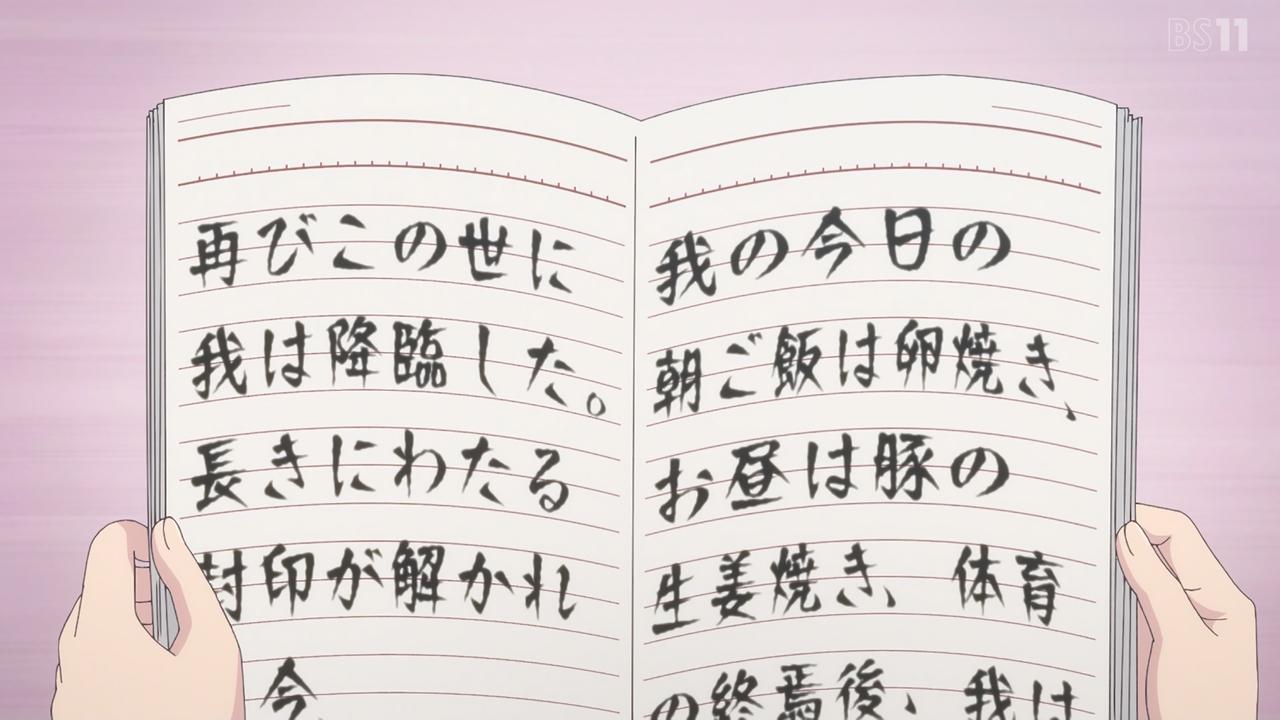 BS11
再びこの世に
我は降臨した。
長きにわたる
封印が解かれ
今
我の今日の
朝ご飯は卵焼き、
お昼は豚の
生姜焼き、体育
の終焉後、我は